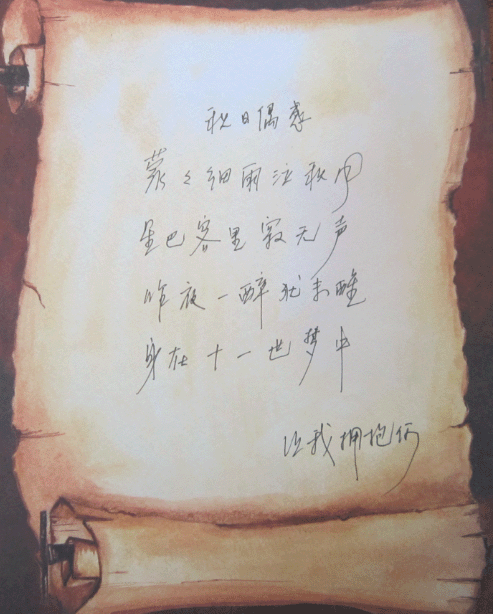 秋日偶感
蒙々细雨泣秋风
星巴客里寂无声
昨夜一醉犹未醒
身在十一世梦中
让我拥抱你